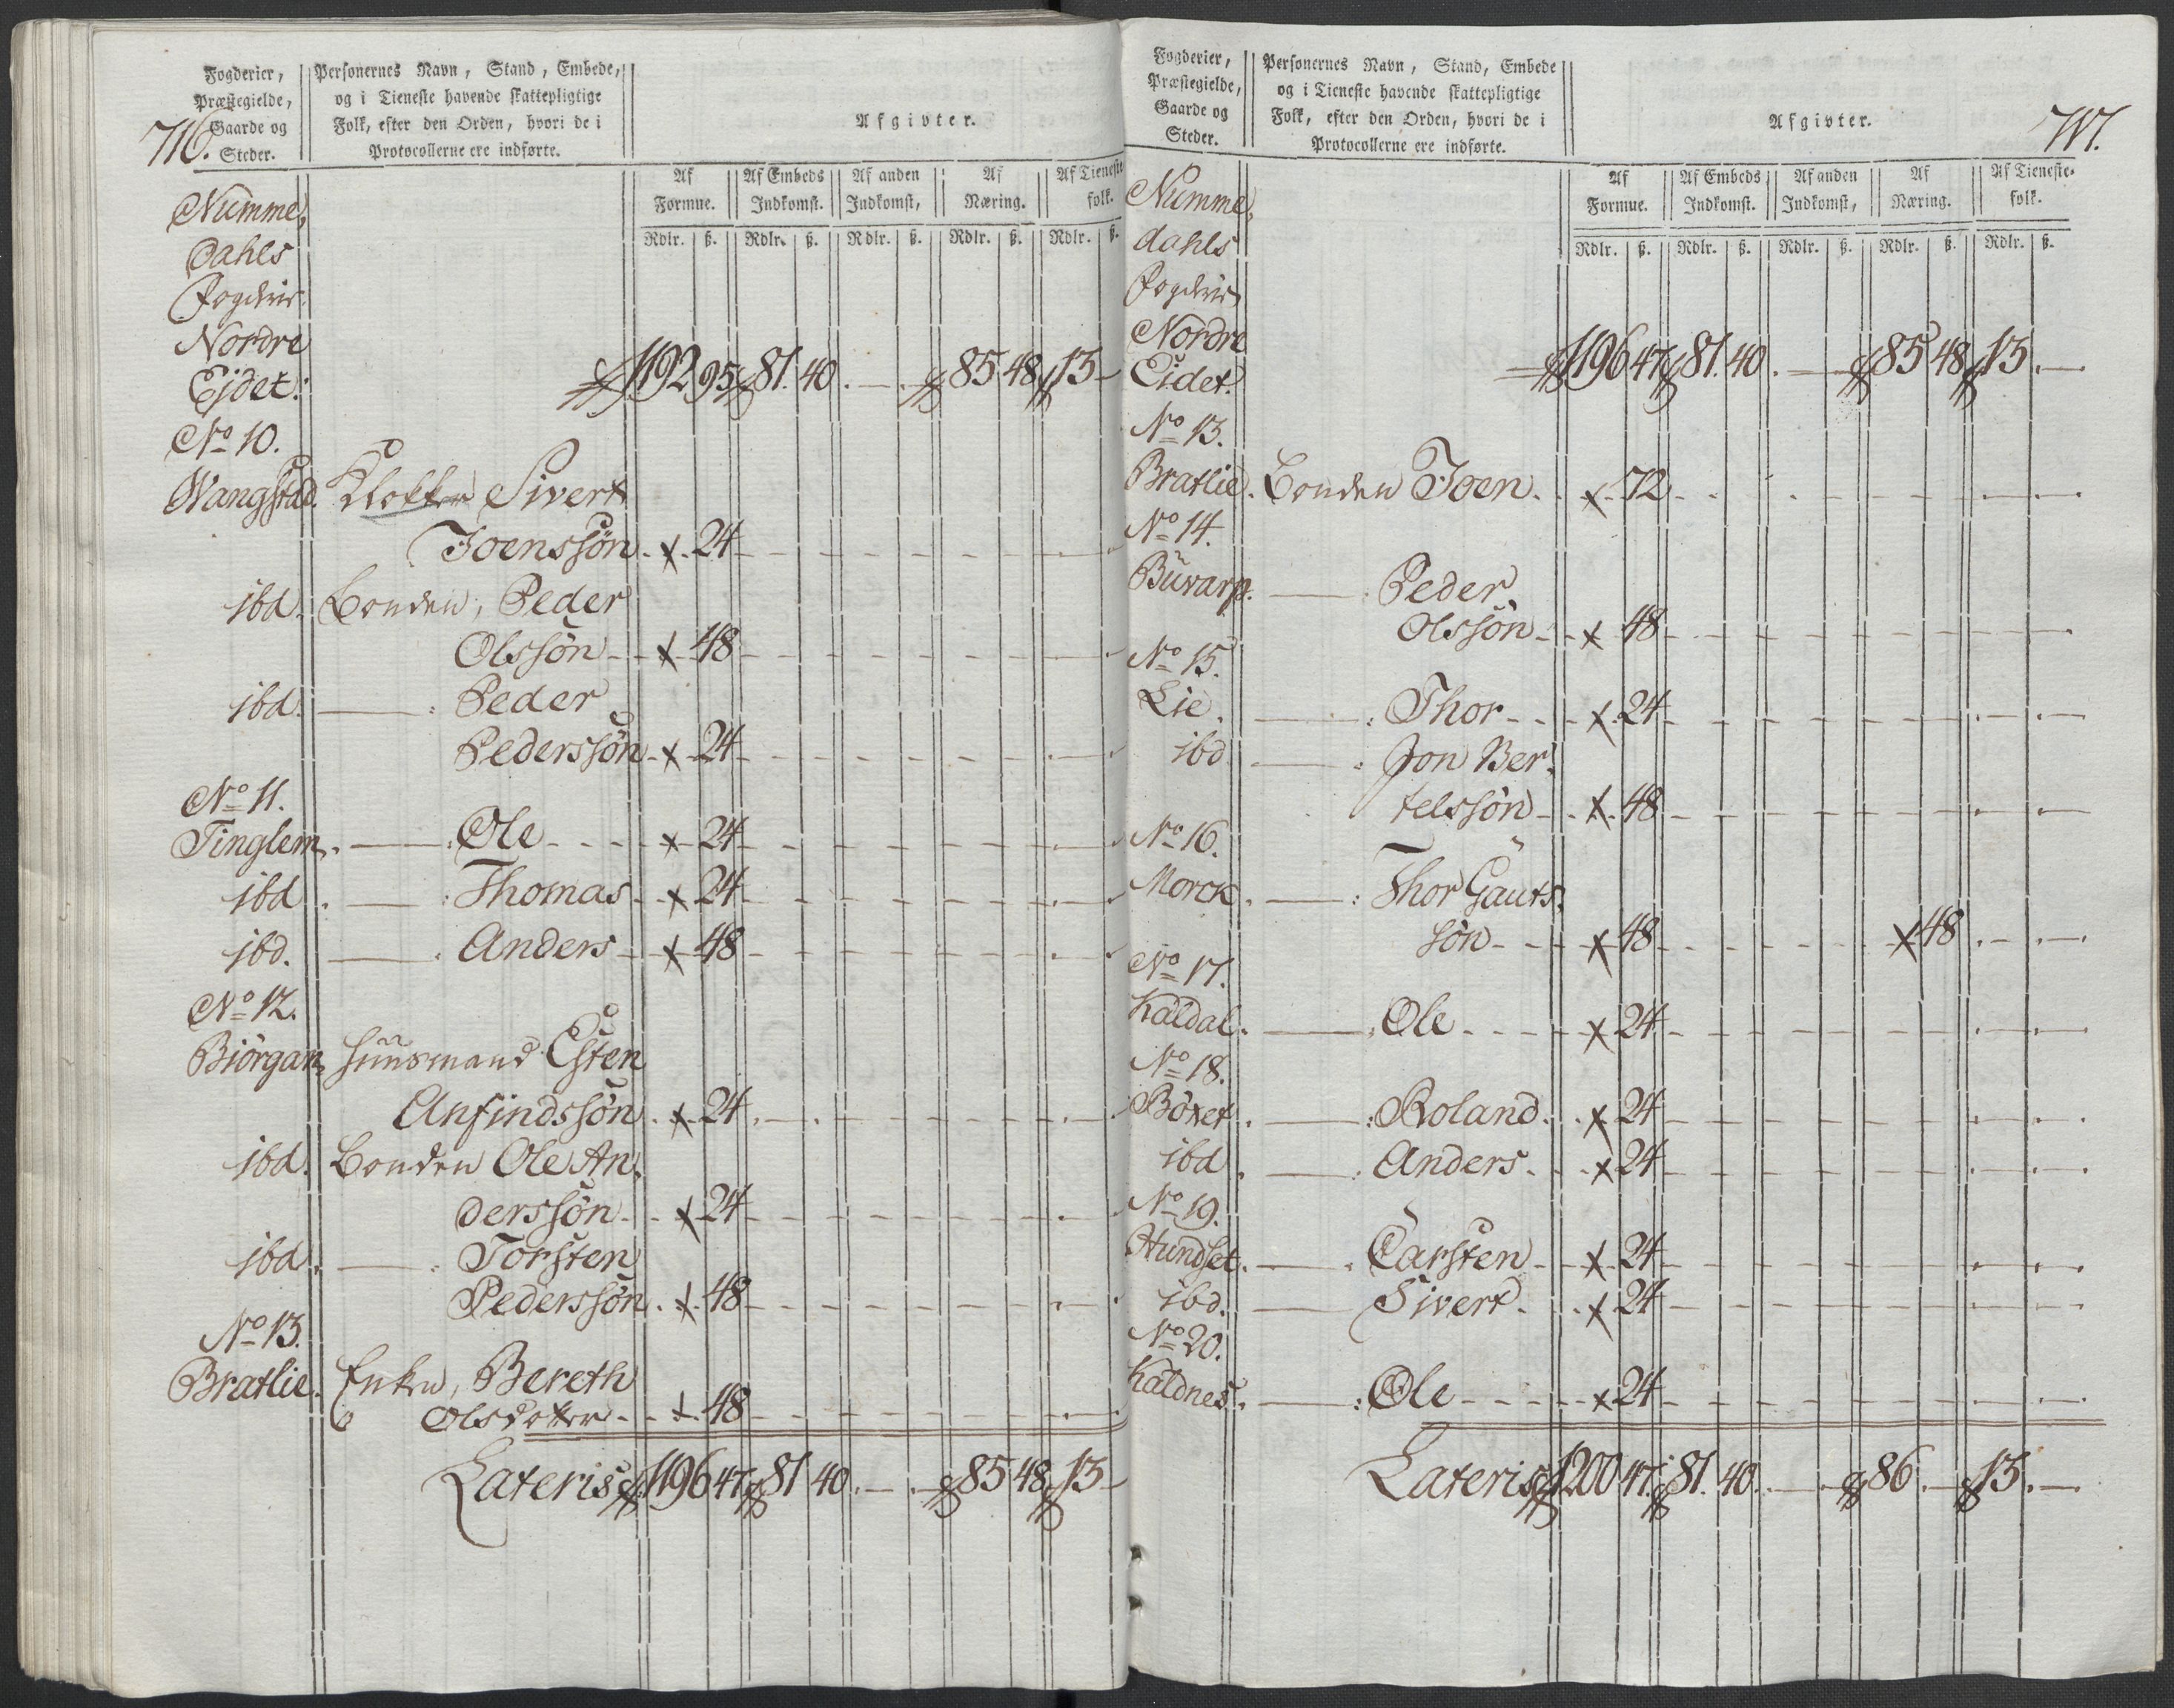 716.
Fogderier,
Præstegielde,
Gaarde og
Steder.
Personernes Navn, Stand, Embede,
og i Tieneste havende skattepligtige
Folk, efter den Orden, hvori de i
Protocollerne ere indførte.
Afgivter.
Af Formue. Af Embeds Indkomst. Af anden Indkomst, Af Næring. Af Tieneste folk.
Rdlr. ß. Rdlr. ß. Rdlr. ß. Rdlr. ß. Rdlr. ß.
Numme,
Dahls
Fogderie
Nordre
Ejdet: 1192 95 81. 40. — . 85 48 13 —
No 10.
Wangstad. Klokker Sivert
Joenssön . x . 24
ibd. Bonden, Peder
Olssön - x 48
ibd. — : Peder
Pederssön - x - 24
No 11.
Tinglem. — : Ole - - - x 24
ibd. — : Thomas - x 24
ibd. — : Anders - x 48
No 12.
Biörgan, Huusmand Esten
Anfindssön . x 24
ibd. Bonden Ole An,
derssön - x 24
ibd. — : Torsten
Pederssön . x 48
No 13.
Bratlie. Enken, Bereth
Olsdotter - x 48
Lateris 1196 47 81 40. — . 85 48 13 —
717.
Fogderier,
Præstegielde,
Gaarde og
Steder.
Personernes Navn, Stand, Embede
og i Tieneste havende skattepligtige
Folk, efter den Orden, hvori de i
Protocollerne ere indførte.
Afgivter.
Af Formue. Af Embeds Indkomst. Af anden Indkomst, Af Næring. Af Tieneste- folk.
Rdlr. ß. Rdlr. ß. Rdlr. ß. Rdlr. ß. Rdlr. ß.
Numme,
dahls
Fogderie
Nordre
Eidet. 1196 47 81. 40. — 85 48 13. —
No 13.
Bratlie. Bonden Joen. x . 72
No 14.
Buvarp. — : Peder
Olssön - x 48
No 15.
Lie. — : Thor - - - x 24
ibd. — : Jon Ber,
telssön - x 48
No 16.
Morck. — : Thor Gauts,
sön - - x 48 x 48
No 17.
Kaldal. — : Ole - - - x 24
No 18.
Böxet. — : Roland. x 24
ibd. — : Anders - x 24
No 19.
Hundset. — : Carsten - x 24
ibd. — Sivert. x 24
No 20.
Kaldnes. — : Ole - - - x 24
Lateris 1200 47. 81. 40. — 86. — 13. —